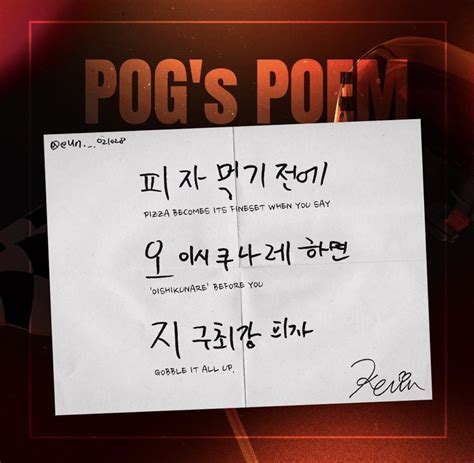 POG's POEM
@eun._.021028
피자 먹기 전에
PIZZA BECOMES ITS FINESET WHEN YOU SAY
오 이시쿠나레 하면
'OISHIKUNARE' BEFORE YOU
지 구최강 피자
GOBBLE IT ALL UP.
Kevin